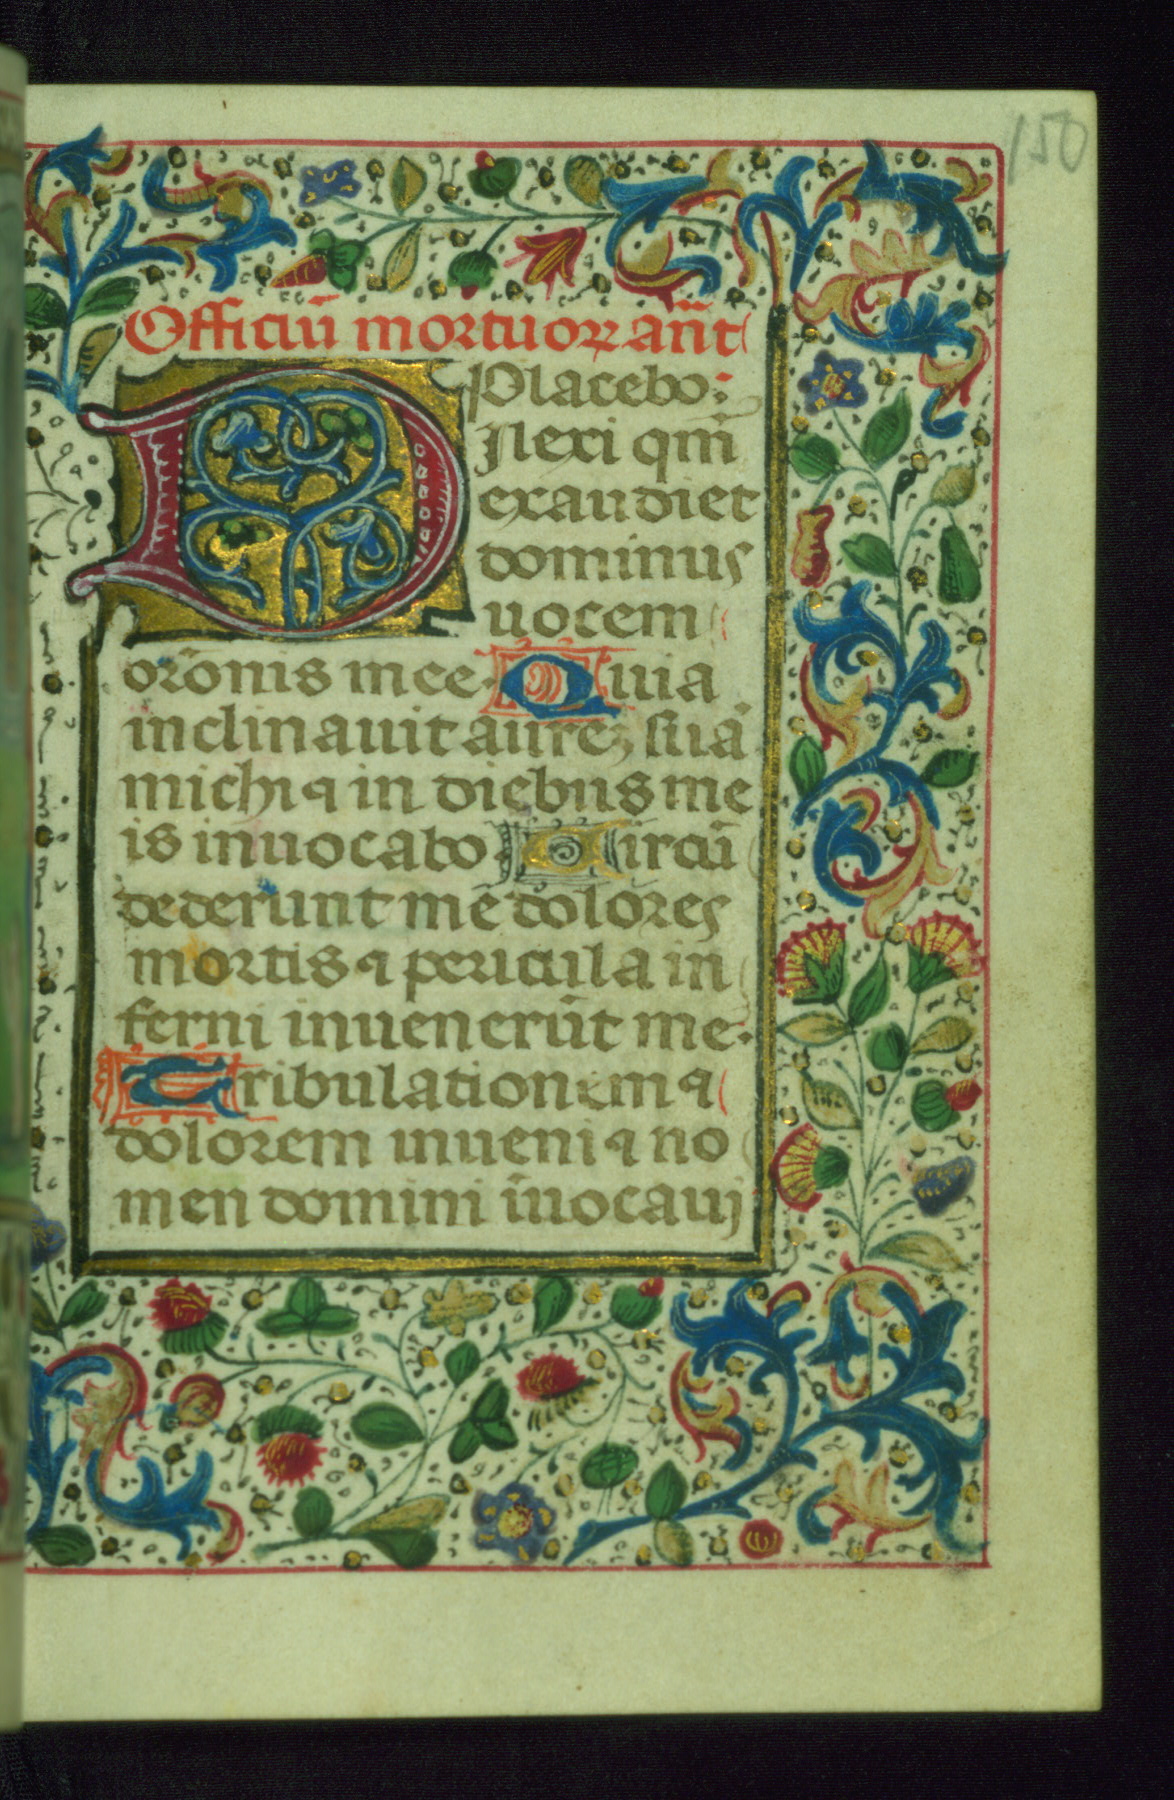 150
Officiū mortuoꝝ an̄t
Placebo:
Dilexi qm̄
exaudiet
dominus
uocem
orōnis mee. Quia
inclinauit aureꝫ suā
michi ⁊ in diebus me
is inuocabo Circū
dederunt me dolores
mortis ⁊ pericula in
ferni inuenerūt me.
Tribulationem ⁊
dolorem inueni ⁊ no
men domini īuocaui